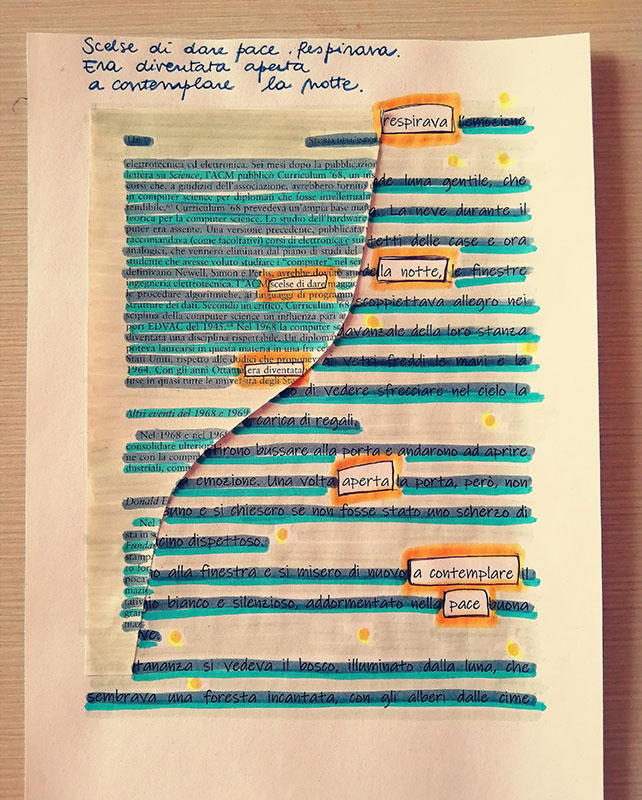 Scelse di dare pace. Respirava.
Era diventata aperta
a contemplare la notte.
STORIA DELL'INFO
elettrotecnica ed elettronica. Sei mesi dopo la pubblicazio
lettera su Science, l'ACM pubblicò Curriculum '68, un in
corsi che, a giudizio dell'associazione, avrebbero fornito
in computer science per diplomati che fosse intellettual
tendibile. Curriculum '68 prevedeva un'ampia base ma
teorica per la computer science. Lo studio dell'hardware
puter era assente. Una versione precedente, pubblicata
raccomandava (come facoltativi) corsi di elettronica e su
analogici, che vennero eliminati dal piano di studi del
studente che avesse voluto studiare i "computer" nel ser
definivano Newell, Simon e Perlis, avrebbe dovuto stud
ingegneria elettrotecnica. l'ACM scelse di dare magg
le procedure algoritmiche, ai linguaggi di programm
strutture dei dati. Secondo un critico, Curriculum '68
sciplina della computer science un influenza pari a
port EDVAC del 1945. Nel 1968 la computer s
diventata una disciplina rispettabile. Un diploma
poteva laurearsi in questa materia in una fra ce
Stati Uniti, rispetto alle dodici che proponeva
1964. Con gli anni Ottanta era diventata
fuse in quasi tutte le università degli Sta
Altri eventi del 1968 e 1969
Nel 1968 e nel 19
consolidare ulterior
ne con la compu
dustriali, comm
Donald E
Nel
sta in s
Funda
stamp
to for
poca
mazi
tativ
gran
maz
respirava l'emozione
de luna gentile, che
a. La neve durante il
tetti delle case e ora
de la notte, le finestre
scoppiettava allegro nei
davanzale della loro stanza
ai vetri freddi le mani e la
o di vedere sfrecciare nel cielo la
carica di regali.
tirono bussare alla porta e andarono ad aprire
emozione. Una volta aperta la porta, però, non
suno e si chiesero se non fosse stato uno scherzo di
icino dispettoso.
o alla finestra e si misero di nuovo a contemplare il
io bianco e silenzioso, addormentato nella pace buona
ve.
tananza si vedeva il bosco, illuminato dalla luna, che
sembrava una foresta incantata, con gli alberi dalle cime